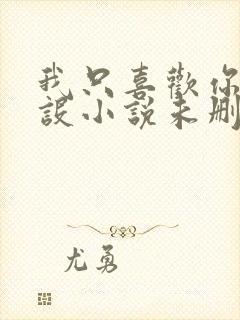 我只喜歡你
設小說未刪
尤勇